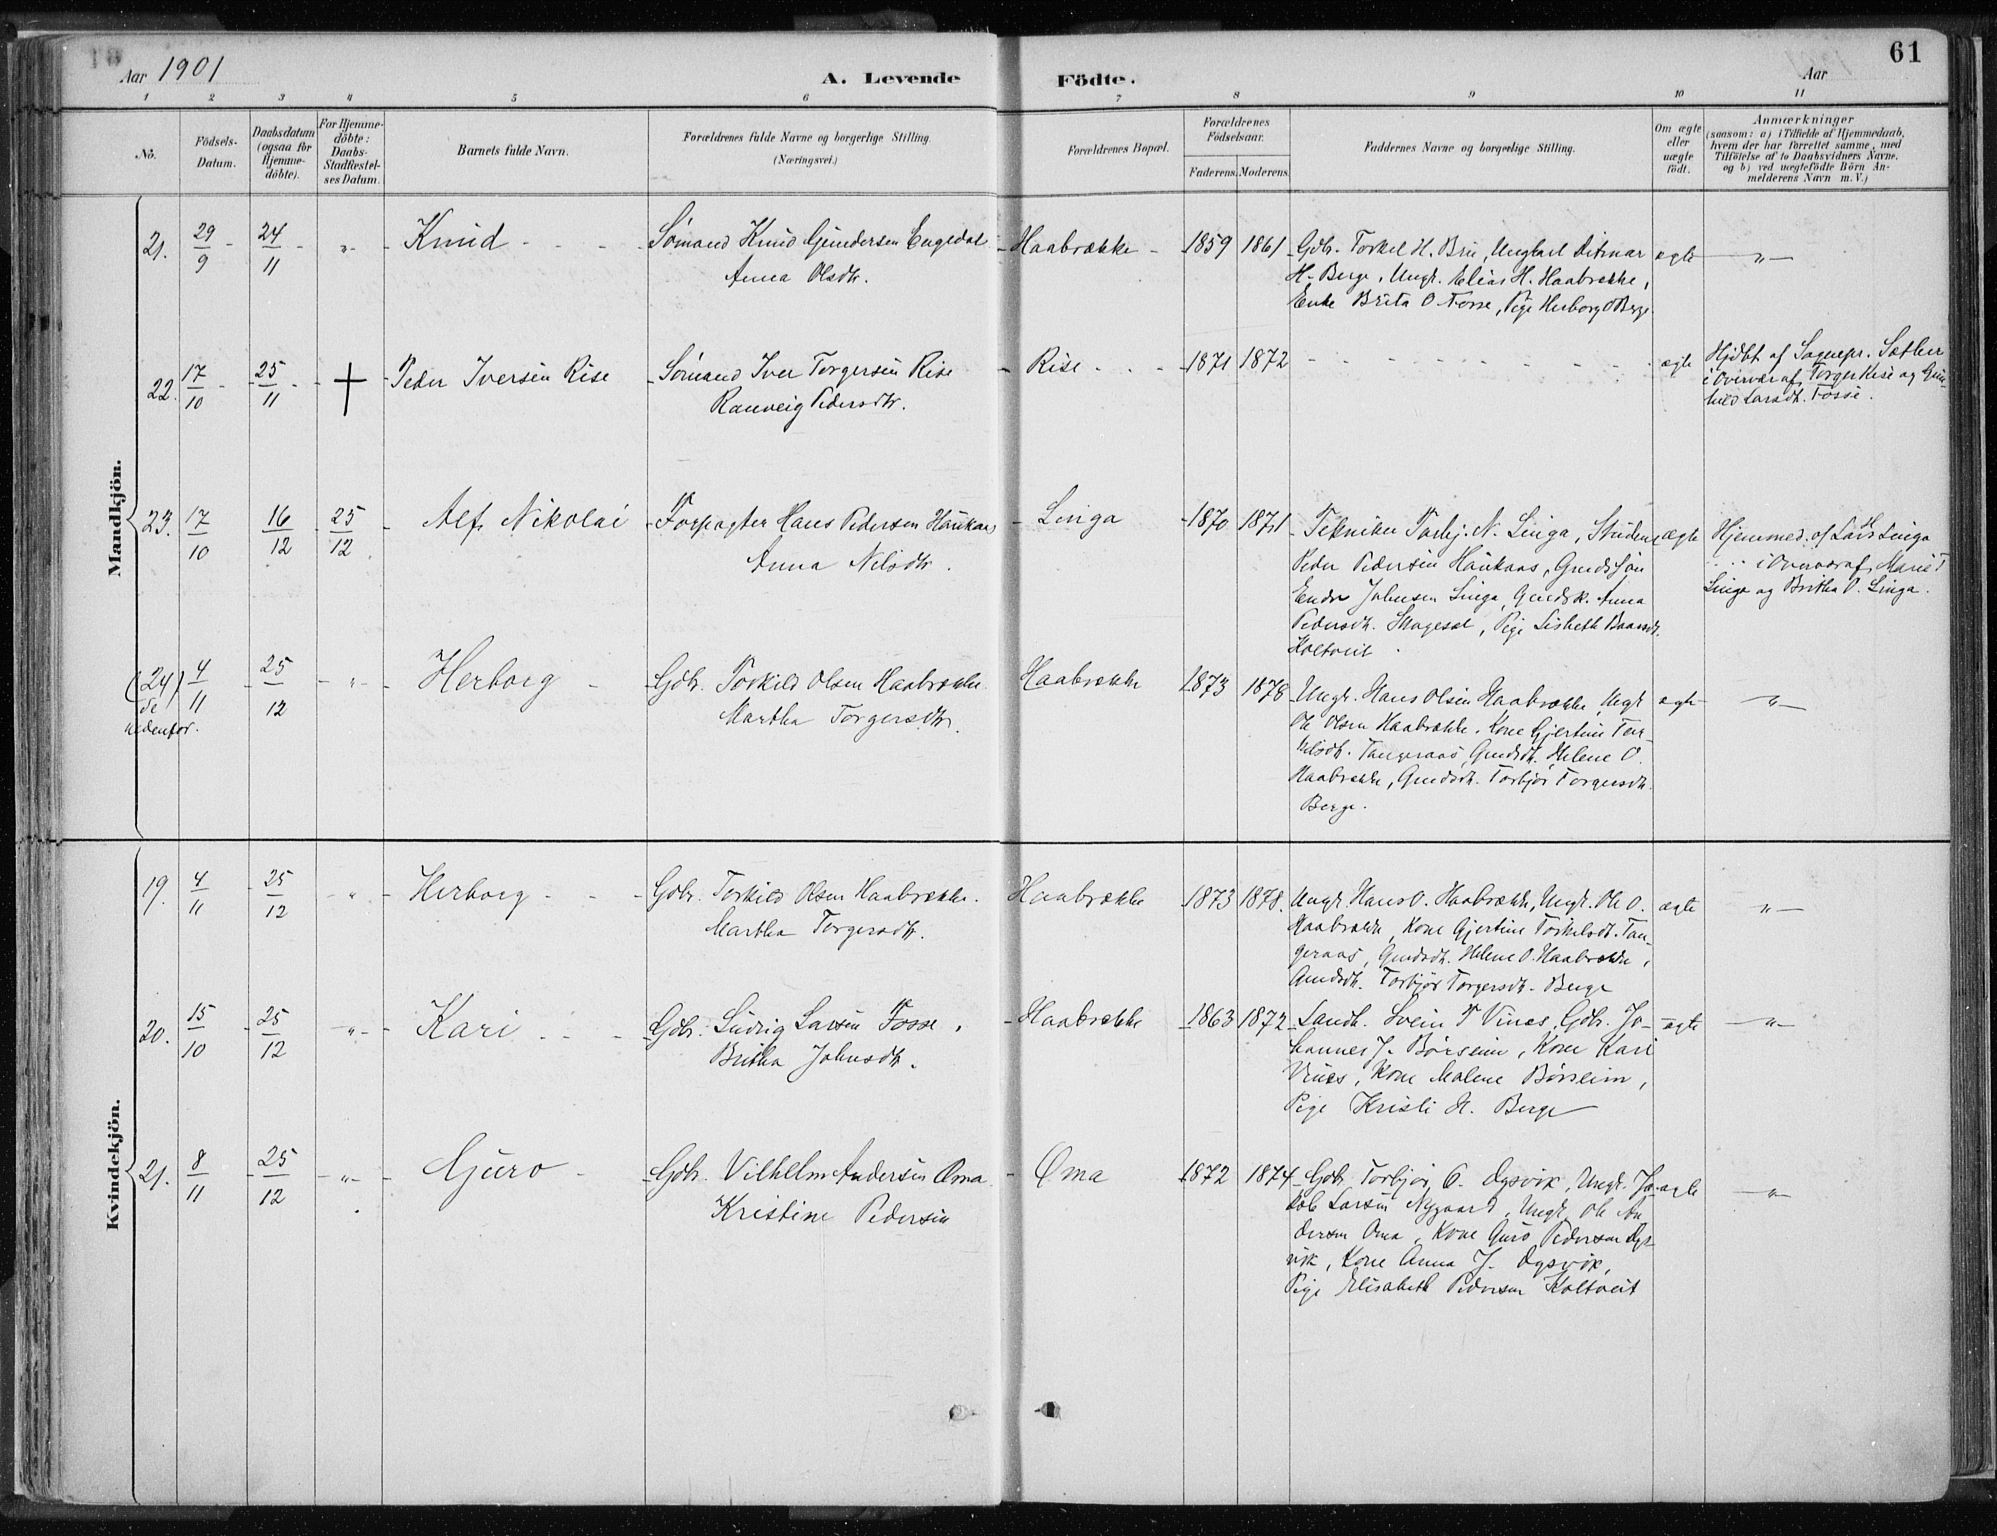 Aar 1901
A. Levende
Födte.
Aar
61
1 2 3 4 5 6 7 8 9 10 11
No.
Födsels-
Datum.
Daabsdatum
(ogsaa for
Hjemme-
döbte).
For Hjemme-
döbte:
Daabs-
Stadfæstel-
ses Datum.
Barnets fulde Navn.
Forældrenes fulde Navne og borgerlige Stilling.
(Næringsvei.)
Forældrenes Bopæl.
Forældrenes
Födselsaar.
Faderens. Moderens.
Faddernes Navne og borgerlige Stilling.
Om ægte
eller
uægte
födt.
Anmærkninger
(saasom: a) i Tilfælde af Hjemmedaab,
hvem der har forrettet samme, med
Tilföielse af to Daabsvidners Navne,
og b) ved uægtefödte Börn An-
melderens Navn m. V.)
Mandkjön.
21. 29/9 - 24/11 - „ - Knud
Sømand Knud Gundersen Engedal
Anna Olsdtr.
Haabrække - 1859 1861
Gdbr. Torkel H. Bru, Ungkarl Ditmar
H. Berge, Ungk. Elias H. Haabrække,
Enke Brita O. Fosse, Pige Herborg O Berge.
ægte - „ -
22. 17/10 - 25/11 - † - Peder Iversen Rise
Sømand Iver Torgersen Rise
Ranveig Pedersdtr.
Rise - 1871 1872
ægte
Hjdbt af Sognepr. Sæther
i Overvær af Torger Rise og Gun-
hild Larsdtr. Fosse.
23. 17/10 16/12 - 25/12 - Alf Nikolai
Forpagter Hans Pedersen Haukaas
Anna Nilsdtr.
Linga - 1870 1871
Tekniker Torbj. N. Linga, Student
Peder Pedersen Haukaas, Grmdssøn
Endre Johnsen Linga, Grmdsk. Anna
Pedersdtr. Skogesal, Pige Lisbeth Baarsdt.
Koltveit.
ægte
Hjemmed. af Lars H Linga
i Overvær af Marie T
Linga og Britha O. Linga.
(24) 4/11 - 25/12 - „ - Herborg
se
nedenfor.
Gdbr. Torkild Olsen Haabrække.
Martha Torgersdtr.
Haabrække 1873 1878
Ungk. Hans Olsen Haabrække, Ungk
Ole Olsen Haabrække, Kone Gjertine Tor-
kilsdtr. Tangeraas, Grmdsdtr. Helene O.
Haabrække, Grmdsdtr. Torbjør Torgersdtr.
Berge.
ægte - „ -
Kvindekjön.
19. 4/11 - 25/12 - „ - Herborg
Gdbr. Torkild Olsen Haabrække.
Martha Torgersdtr.
Haabrække 1873 1878.
Ungk Hans O. Haabrække, Ungk. Ole O.
Haabrække, Kone Gjertine Torkilsdt. Tan-
geraas, Grmdsdtr. Helene O. Haabrække,
Grmdsdtr. Torbjør Torgersdtr. Berge
ægte - „ -
20. 15/10 - 25/12 - „ - Kari
Gdbr. Ludvig Larsen Fosse.
Britha Johnsdtr.
Haabrække 1863 1872
Landh. Svein T Vines, Gdbr. Jo-
hannes J. Børseim, Kone Kari
Vines, Kone Malene Børseim,
Pige Kristi H. Berge
ægte - „ -
21. 8/11 - 25/12 - „ - Guro
Gdbr. Vilhelm Andersen Oma
Kristine Pedersen
Oma 1872 1874
Gdbr. Torbjør O. Dysvik, Ungk. Ja-
kob Larsen Nygaard, Ungk. Ole An-
dersen Oma, Kone Guro Pedersen Dys-
vik, Kone Anna J. Dysvik,
Pige Elisabeth Pedersen Koltveit
ægte - „ -